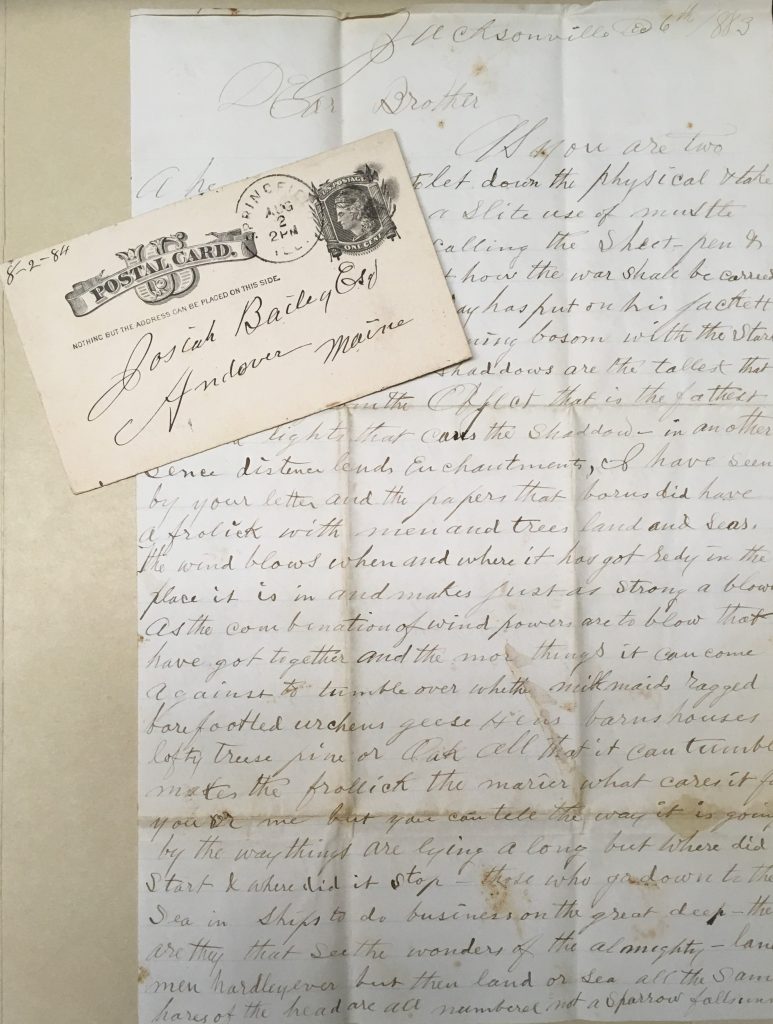 8-2-84
U S
POSTAL CARD.
NOTHING BUT THE ADDRESS CAN BE PLACED ON THIS SIDE.
PRINCE
AUG
2
2PM
ILL
U.S. POSTAGE
ONE CENT
Josiah Bailey Esq
Andover Maine
Jacksonville 6th/1883
DEar Brother
As you are two
A he let down the physical & take
a Slite use of mustle
calling the Sheet-pen &
how the war shall be carried
has put on his Jackett
bosom with the Star
Shaddows are the tallest that
the Object that is the fathest
lights that caus the Shaddow - in another
Sence distence lends Enchantments, I have seen
by your letter and the papers that barns did have
a frolick with men and trees land and Seas.
the wind blows when and where it has got redy in the
place it is in and makes Just as Strong a blow
As the combination of wind powers are to blow that
have got together and the mor things it can come
against to tumble over whethe milkmaids ragged
barefootled urchens geese Hens barns houses
lofty truse pine or Oak all that it can tumbl
makes the frollick the marier what cares it f
you or me but you can tele the way it is going
by the way things are lying a long but where did
Start & where did it Stop - those who go down to the
Sea in Ships to do business on the great deep - the
are they that See the wonders of the almighty - lan
men hardley ever but then land or Sea all the Sam
hares of the head are all numbered not a Sparrow falls